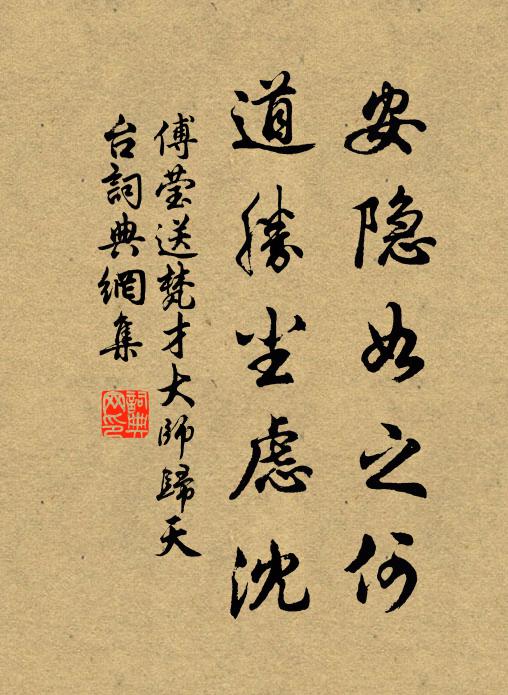 安隐如之何
道勝坐慮沈
傅莹送梵才大師歸天
台詞典網集
詞典網印